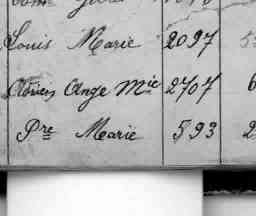 Louis Marie 2097
Ange Mie 2707
Pre Marie 593 2